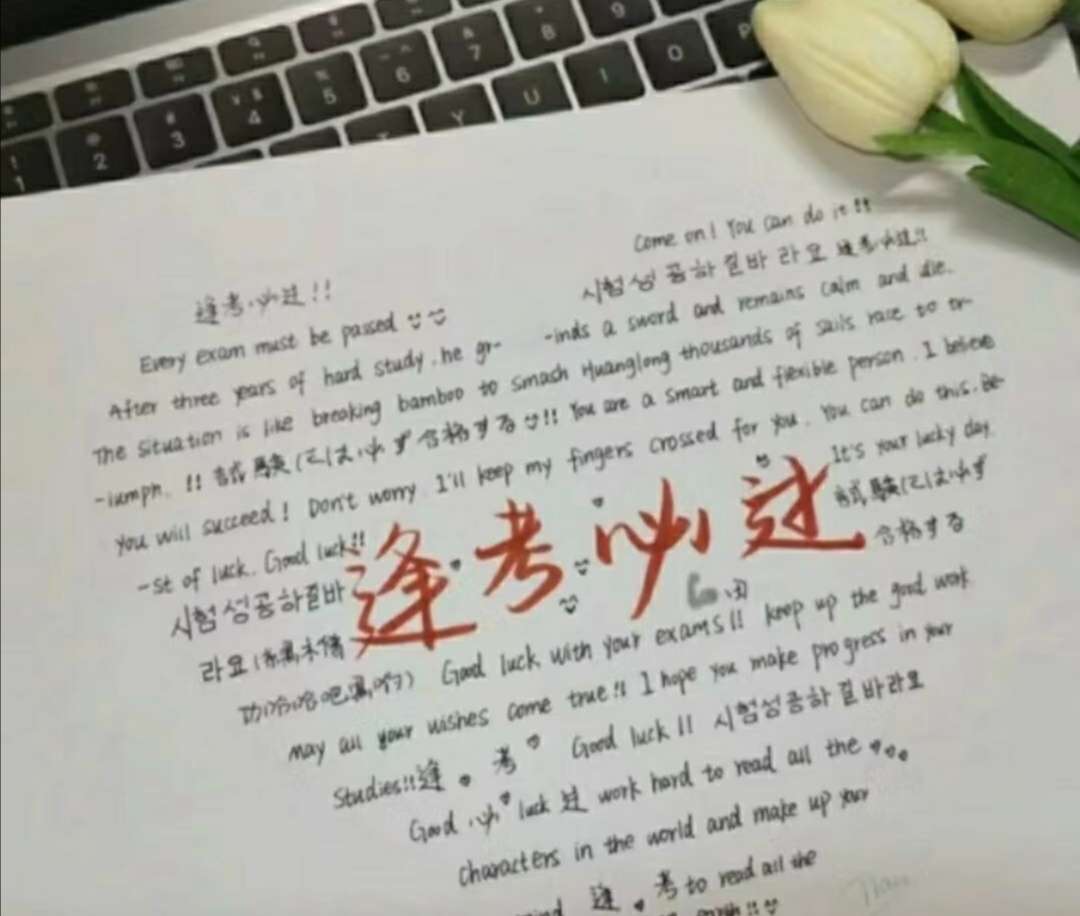 Come on! You can do it!!
逢考必过!!
시험성공하길바라요 逢考必过!!
Every exam must be passed
After three years of hard study, he gr- -inds a sword and remains calm and die.
The situation is like breaking bamboo to smash Huanglong thousands of sails race to tr-
-iumph. !! 試験には必ず合格する!! You are a smart and flexible person. I believe
you will succeed! Don't worry. I'll keep my fingers crossed for you. You can do this. Be-
-st of luck. Good luck!!
It's your lucky day
逢考必过
試験には必ず
合格する
시험성공하길바
라요
Good luck with your exams!! keep up the good work
may all your wishes come true!! I hope you make progress in your
studies!! 逢考 Good luck!! 시험성공하길바라요
Good 必 luck 过 work hard to read all the
characters in the world and make up your
逢考 to read all the